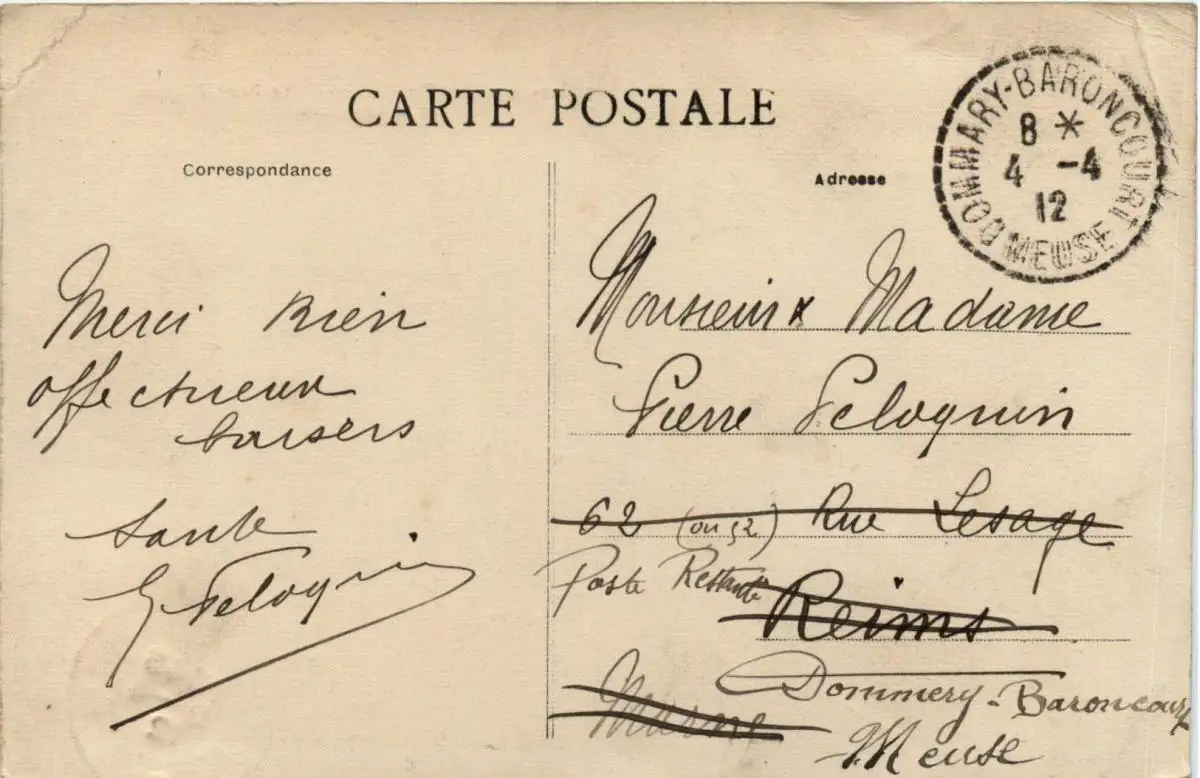 CARTE POSTALE
Correspondance
Adresse
DOMMARY-BARONCOURT
8 *
4 -4
12
MEUSE
Merci Bien
affectueux
baisers
Santé
G Peloquin
Monsieur x Madame
Pierre Peloquin
62 (ou 52) Rue Lesage
Poste Restante
Reims
Marne
Dommery-Baroncourt
Meuse